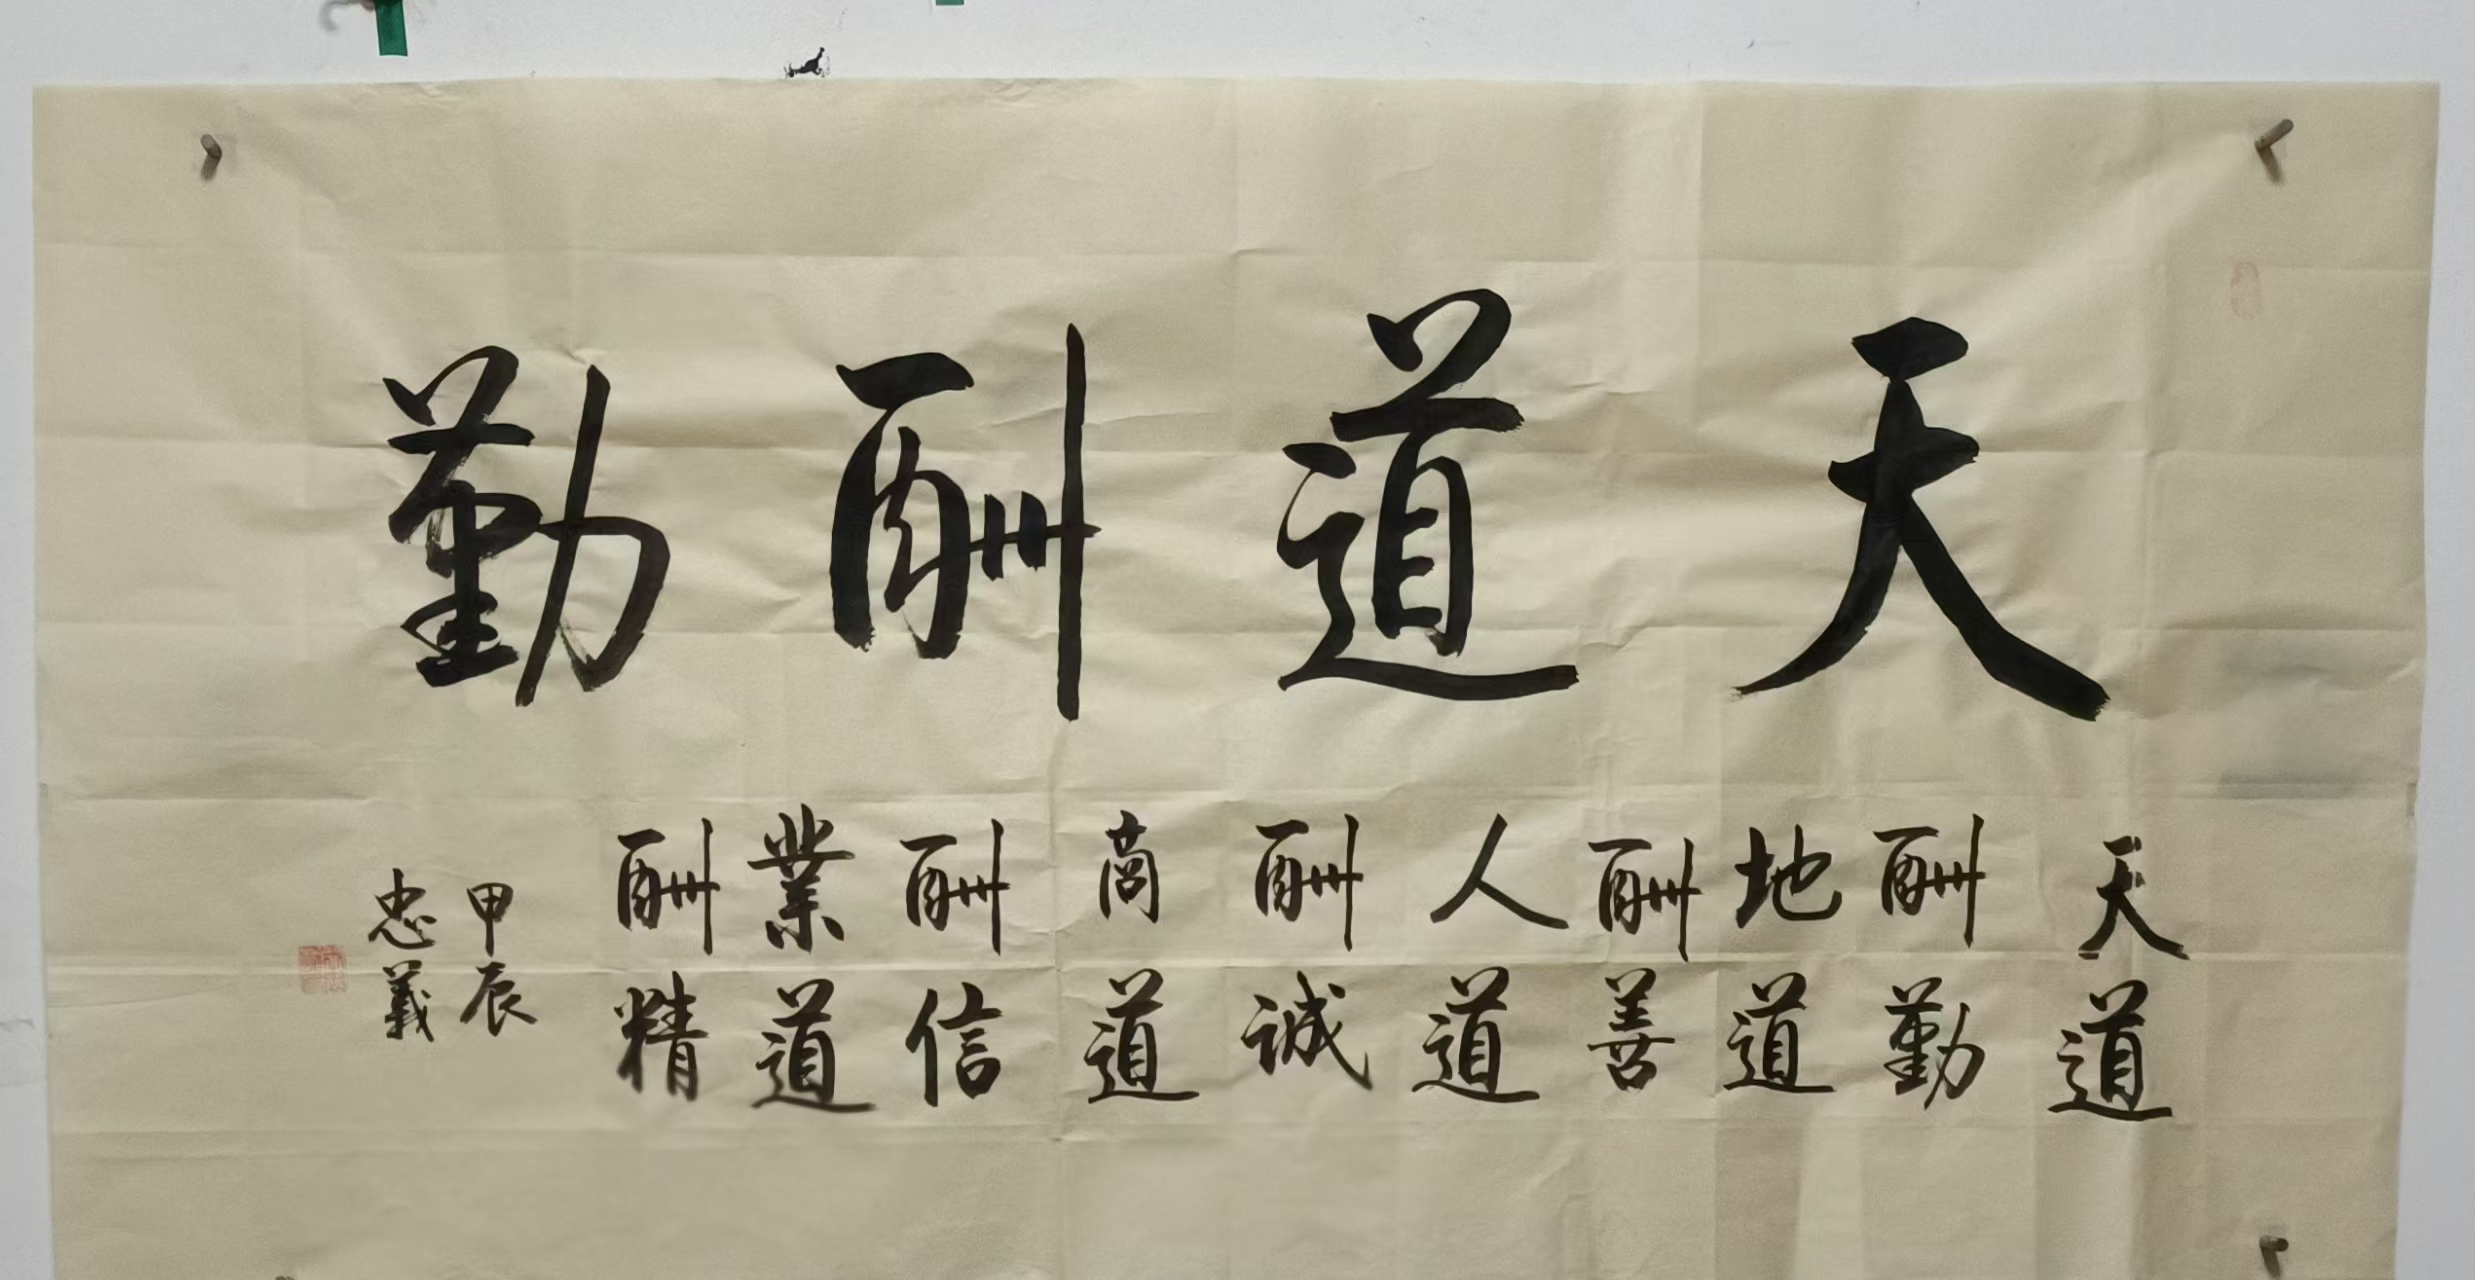 天道酬勤
天道
酬勤
地道
酬善
人道
酬誠
商道
酬信
業道
酬精
甲辰
忠義